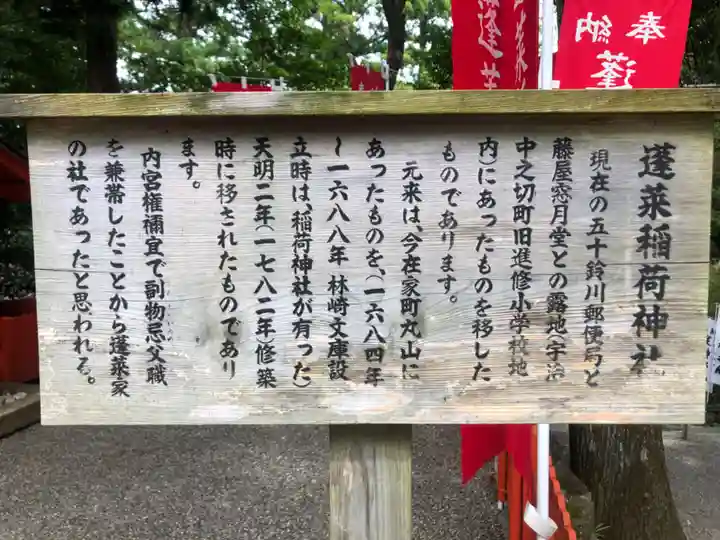 蓬莱稲荷神社
現在の五十鈴川郵便局と
藤屋窓月堂との露地(宇治
中之切町旧進修小学校地
内)にあったものを移した
ものであります。
元来は、今在家町丸山に
あったものを、(一六八四年
~一六八八年 林崎文庫設
立時は、稲荷神社が有った)
天明二年(一七八二年)修築
時に移されたものであり
ます。
内宮権禰宜で副物忌父職
を兼帯したことから蓬莱家
の社であったと思われる。
奉納
蓬
蓬莱